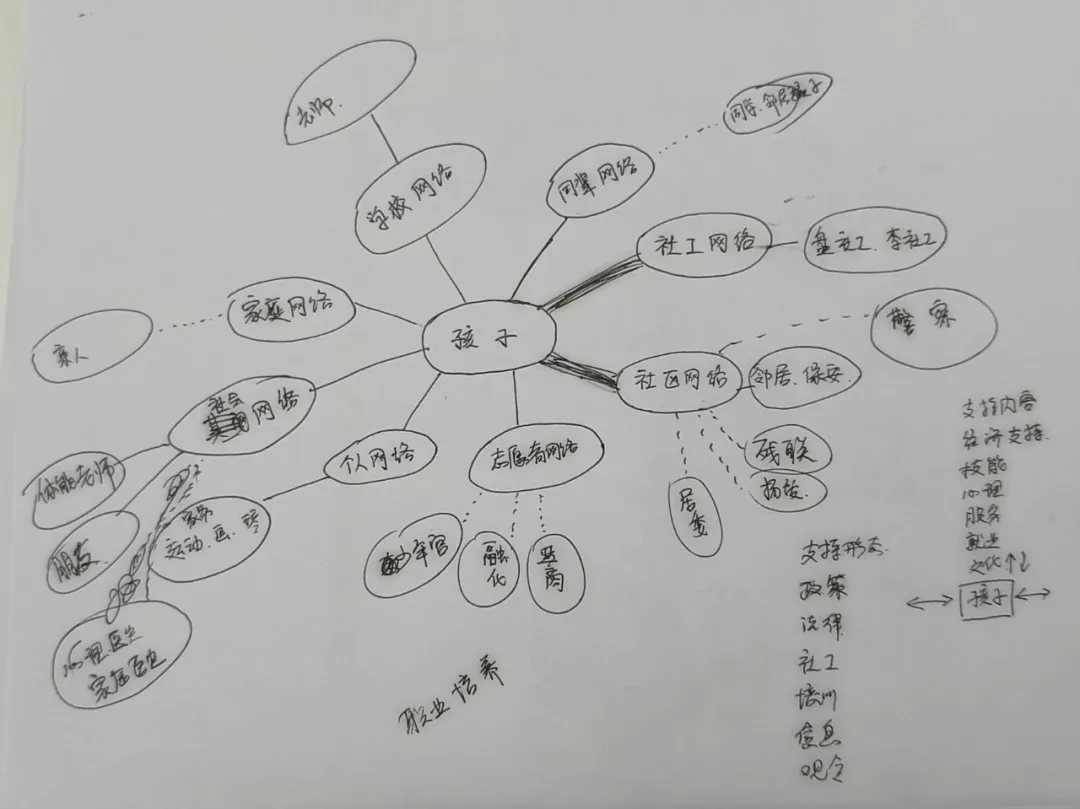 老师.
学校网络
同辈网络
同学.邻居孩子
社工网络
盘社工、李社工
家庭网络
孩子
亲人
警察
社区网络
邻居、保安.
社会
网络
个人网络
志愿者网络
残联
居委
体能老师
朋友
家务
运动、画、琴
少年宫
融化
心理医生
家庭医生
职业培养
支持形式
政策
法律
社工
培训
信息
观念
支持内容
经济支持.
技能
心理
服务
就业
文化↑↓
孩子